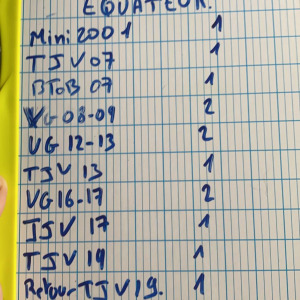 EQUATEUR.
Mini 2001 1
TJV 07 1
BToB 07 1
VG 08-09 2
VG 12-13 2
TJV 13 1
VG 16-17 2
TJV 17 1
TJV 19 1
Retour TJV 19. 1